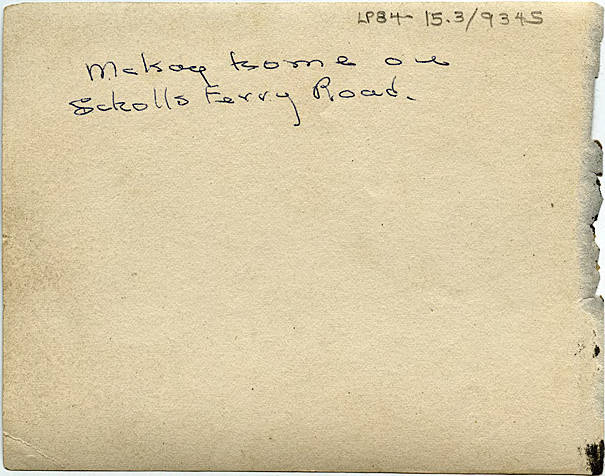 LP84- 15.3/934S
McKay home on
Scholls Ferry Road.